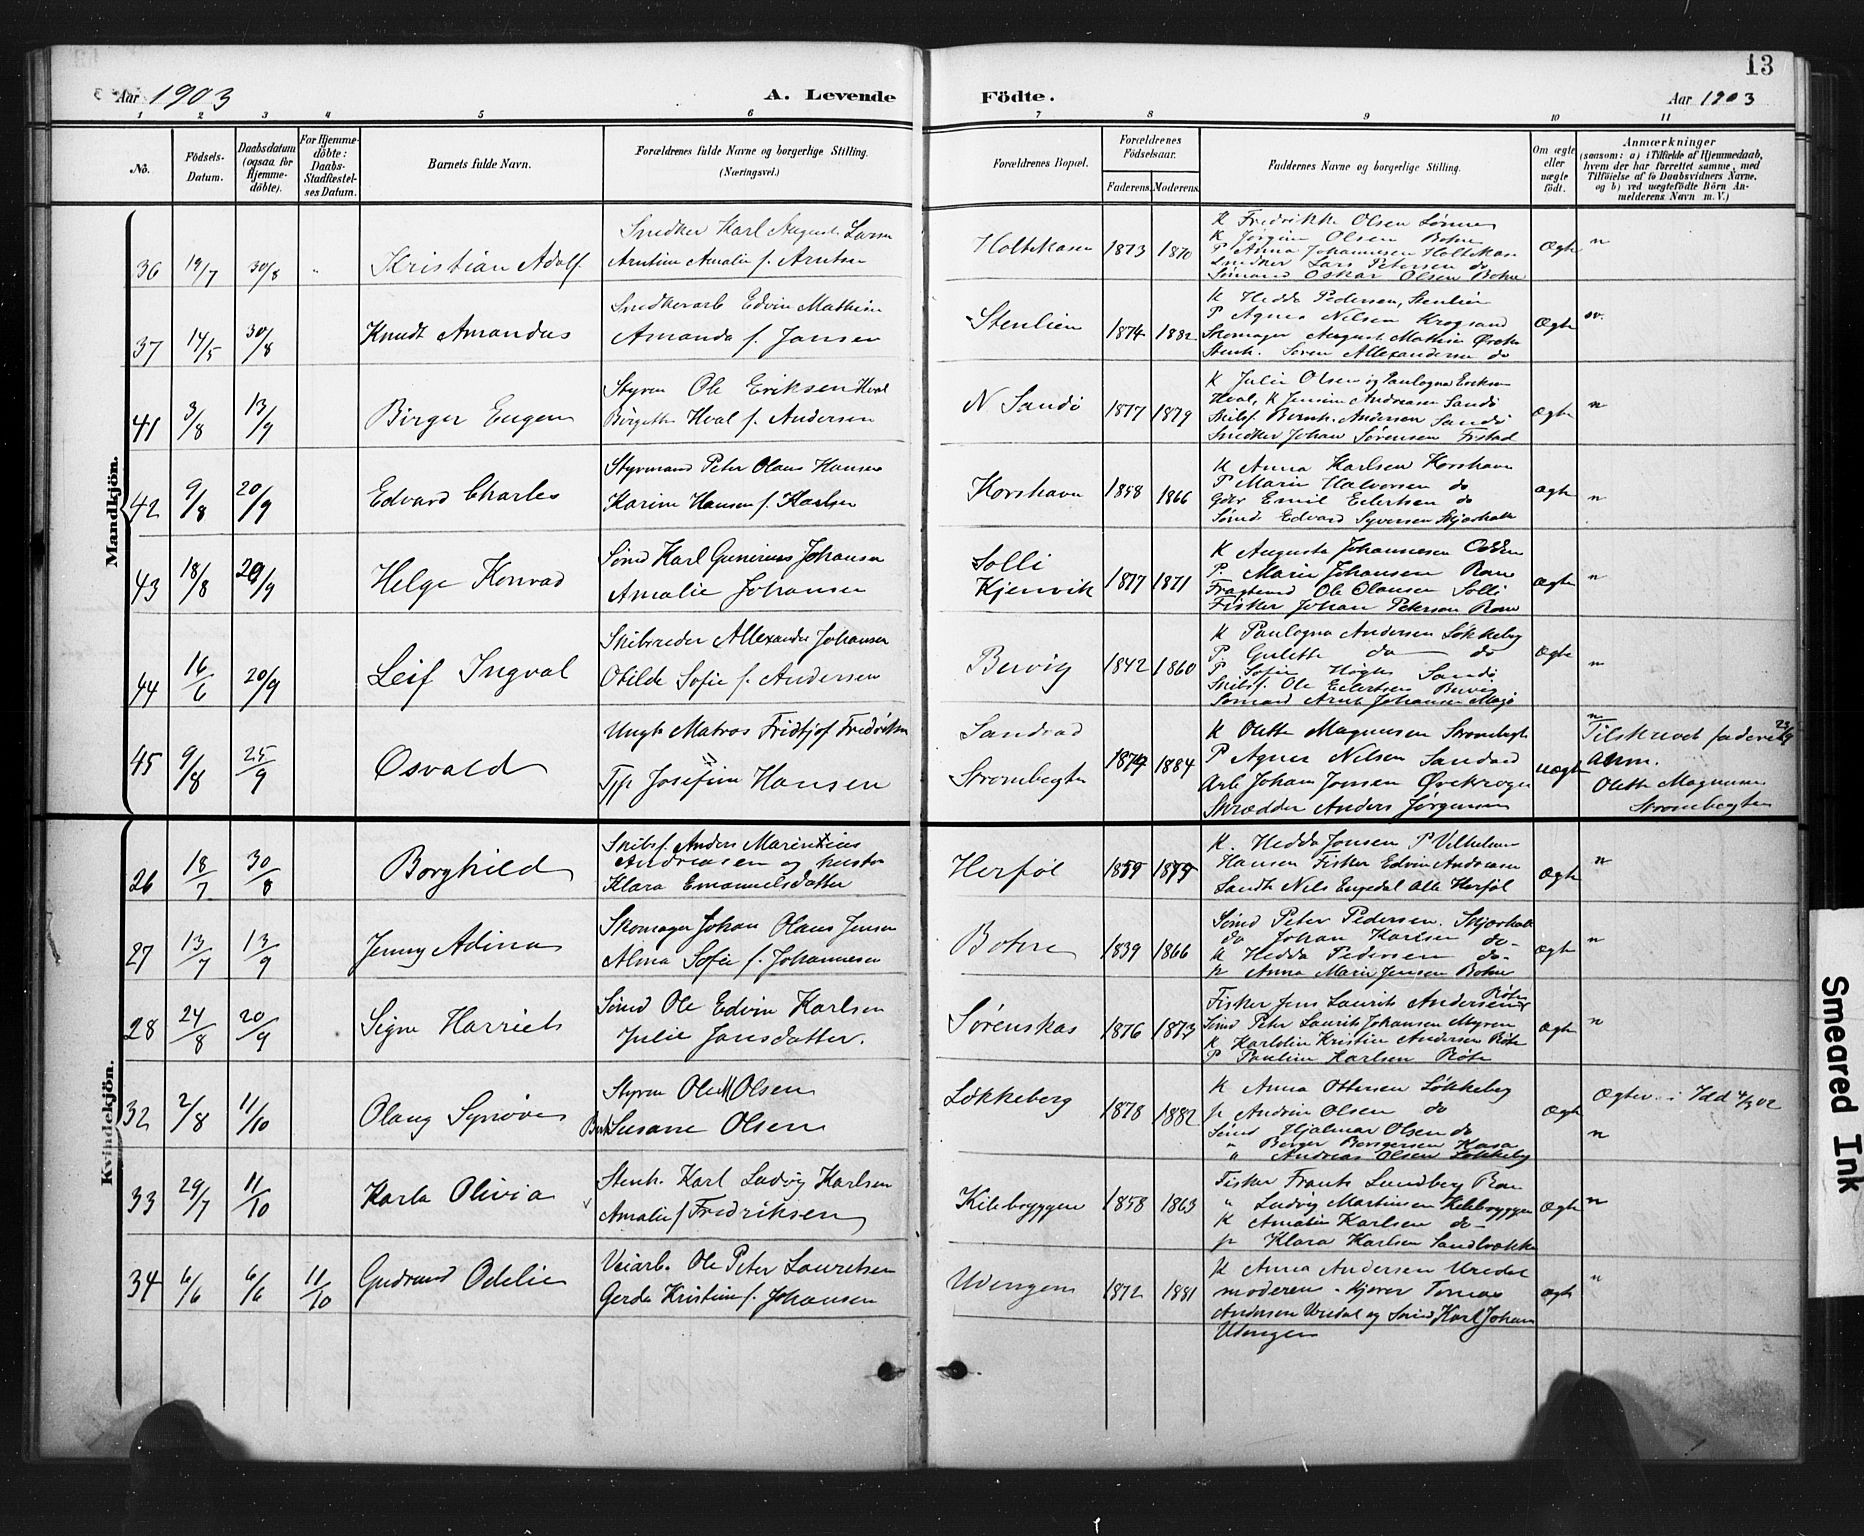 13
Aar 1903 A. Levende Födte. Aar 1903
1 2 3 4 5 6 7 8 9 10 11
No.
Födsels-
Datum.
Daabsdatum
(ogsaa for
Hjemme-
döbte).
For Hjemme-
döbte:
Daabs-
Stadfæstel-
ses Datum.
Barnets fulde Navn.
Forældrenes fulde Navne og borgerlige Stilling.
(Næringsvei.)
Forældrenes Bopæl.
Forældrenes
Födselsaar.
Faderens. Moderens.
Faddernes Navne og borgerlige Stilling.
Om ægte
eller
uægte
födt.
Anmærkninger
(saasom: a) i Tilfælde af Hjemmedaab,
hvem der har forrettet samme, med
Tilföielse af to Daabsvidners Navne,
og b) ved uægtefödte Börn An-
melderens Navn m. V.)
Mandkjön.
36 19/7 30/8 " Kristian Adolf
Snedker Karl August Larsen
Arntine Amalie f. Arntsen
Holtekasen 1873 1870
K Fredrikke Olsen
K Jørgine Olsen Botne
P Anna Johannesen Holtekasen
Snedker Lars Petersen do
Sömand Oskar Olsen Botne
Ægte n
37 14/5 30/8 Knudt Amandus
Snedkerarb Edvin Mathisen
Amanda f. Jansen
Stenlien 1874 1882
K Hedda Pedersen, Stenlien
P Agnes Nilsen Krogsand
Skomager August Mathisen
Stenh. Søren Allexandersen do
Ægte
41 3/8 13/9 Birger Eugen
Styrm Ole Eriksen Hval
Birgitte Hval f. Andersen
N Sandö 1877 1879
K Julie Olsen og Paulogna Eriksen
Hval, K Jensine Andreasen Sandö
Skibsf. Bernh. Andersen Sandö
Snedker Johan Sørensen Tistad
Ægte n
42 9/8 20/9 Edvard Charles
Styrmand Peter Olaus Hansen
Karine Hansen f. Karlsen
Korshavn 1858 1866
K Anna Karlsen Korshavn
P Marie Halvorsen do
Emil Eilertsen do
Sömd Edvard Syversen Skjærhall
Ægte n
43 18/8 20/9 Helge Konrad
Sömd Karl Gunerius Johansen
Amalie Johansen
Solli
Kjenvik 1877 1871
K Augusta Johannesen
P. Marie Johansen
Ole Olausen Solli
Fisker Johan Petersen
Ægte n
44 16/6 20/9 Leif Ingval
Skibsreder Allexander Johansen
Otilde Sofie f. Andersen
Bervig 1842 1860
K Paulogna Andersen Løkkeberg
P. Gulette do do
P Sofie Sandö
Skibsf. Ole Eilertsen Bervig
Sömand Arnt Johansen
Ægte n
45 9/8 25/9 Osvald
Ungk Matros Fridtjof Fredriksen
Tjp Josefine Hansen
Sandvad
Strømbegten 1874 1884
K Olette Magnusen Strømbegten
P Agnes Nilsen Sandvad
Arb Johan Jonsen Ørekroken
Skrædder Anders Jørgensen
uægte
n
Tilskrevet faderen 23/9
Anm.
Olette Magnusen
Strømbegten
Kvindekjön.
26 18/7 30/8 Borghild
Skibsf. Anders Marentius
Andreasen og hustru
Klara Emanuelsdatter
Herföl
K. Hedda Jonsen P Vilhelmine
Hansen Fisker Edvin Andreasen
Sandtk Nils Engedal Alle Herföl
Ægte n
27 13/7 13/9 Jenny Adina
Skomager Johan Olaus Jensen
Alma Sofie f. Johannesen
Botne 1839 1866
Sömd Peter Pedersen. Skjærhall
do Johan Karlsen do-
K Hedda Pedersen do-
p Anna Marie Jensen Botne
Ægte n
28 24/8 20/9 Signe Harriet
Sömd Ole Edvin Karlsen
Julie Jansdatter.
Sørenskas 1876 1873
Fisker Jens Laurits Andersen
Sömd Peter Laurits Johansen Myren
K Karlstin Kristin Andersen Röte
P Pauline Karlsen Röte
Ægte n
32 2/8 11/10 Olaug Synøve
Styrm Ole M Olsen
Susanne Olsen
Løkkeberg 1878 1882
K Anna Ottersen Løkkeberg
p Andrine Olsen do
Sömd Hjalmar Olsen do
" Borger Borgersen Kasa
" Andreas Olsen Løkkeberg
Ægte
Ægtev. i Idd 4/9 02
n
33 29/7 11/10 Karla Olivia
Stenh. Karl Ludvig Karlsen
Amalie f Fredriksen
Kilebryggen 1858 1863
Fisker Frants Lundberg
" Ludvig Martinsen Kilebryggen
K Amalie Karlsen do-
p Klara Karlsen Sandbrække
Ægte n
34 6/6 6/6 11/10 Gudrund Odelie
Veiarb. Ole Peter Lauretsen
Gerda Kristine f. Johansen
Udengen 1872 1881
K Anna Andersen Vredal
moderen. Tomas
Andersen Vredal og Sömd, Karl Johan
Udengen
ægte n
Smeared Ink